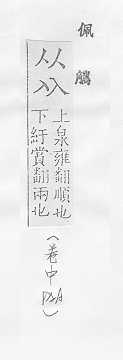 佩觿
从 上泉雍翻順也
㒳 下紆賞翻兩也
(卷中 P4A)